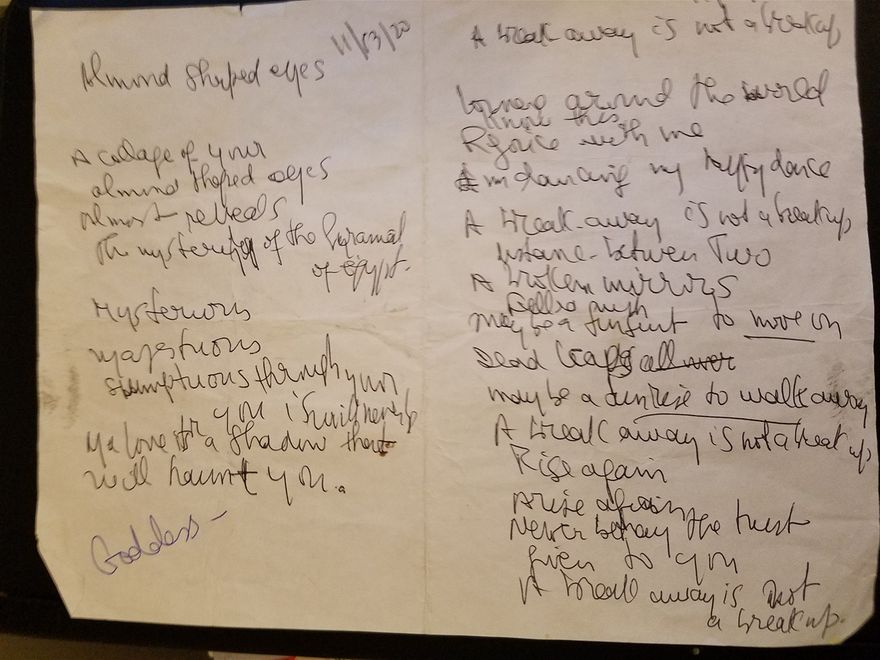 11/03/20
Almond shaped eyes
A collage of your
almond shaped eyes
almost reveals
The mystery of the
of Egypt.
Mysterious
majestuous
sumptuous through your
you
love a shadow that
will haunt you.
Goddess -
A break away is not a breakup
around the world
Know this
Rejoice with me
I'm dancing my happy dance
A break-away is not a breakup
between Two
A broken mirrors
maybe a to move on
Dead
may be a to walk away
A break away is not a break up
Rise again
Arise again
Never betray the trust
given to you
A break away is not
a breakup.